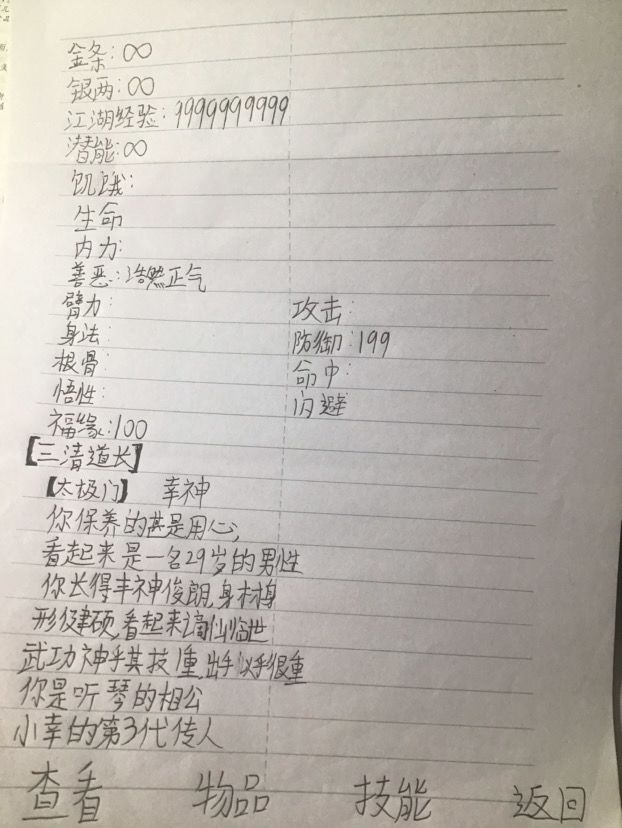 金条:∞
银两:∞
江湖经验:9999999999
潜能:∞
饥饿:
生命
内力:
善恶:浩然正气
臂力: 攻击:
身法: 防御:199
根骨: 命中:
悟性: 闪避
福缘:100
【三清道长】
【太极门】 幸神
你保养的甚是用心,
看起来是一名29岁的男性
你长得丰神俊朗,身材身
形健硕,看起来谪仙临世
武功神乎其技重,出手似乎很重
你是听琴的相公
小幸的第3代传人
查看 物品 技能 返回